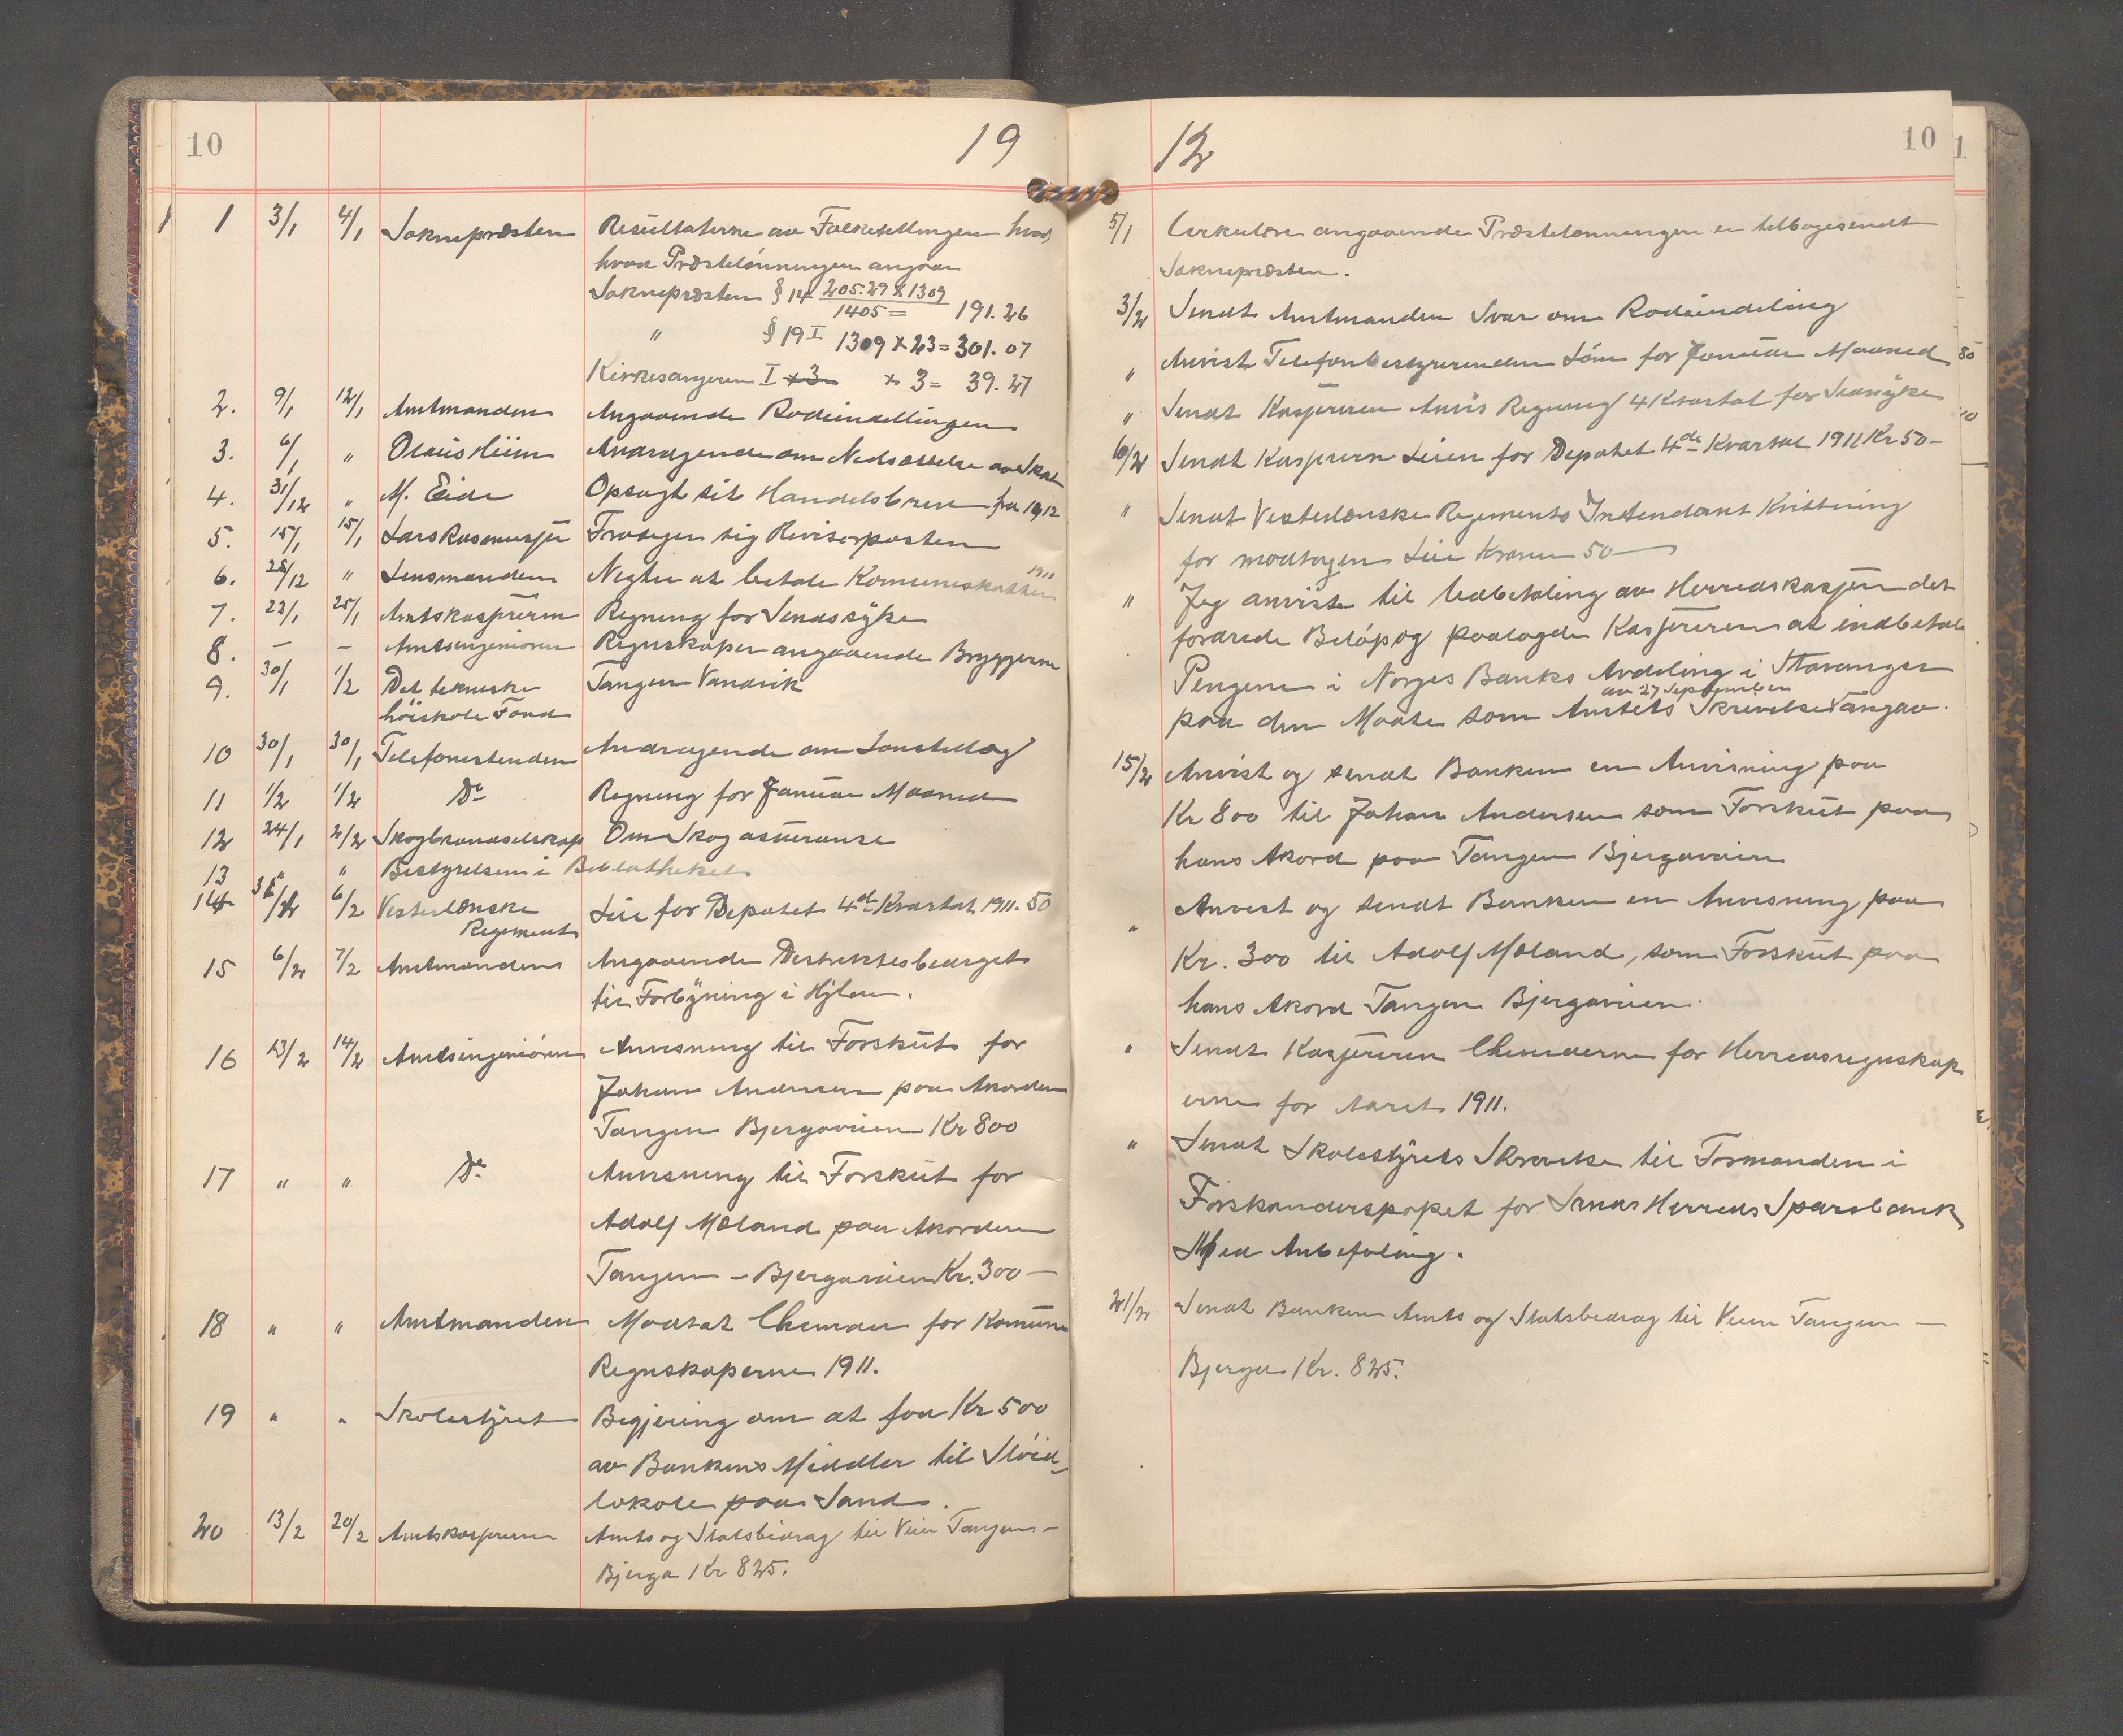 10
19
1 3/1 4/1 Soknepræsten Resultaterne av Folketellingen hvad
hvad Præstelønningen angaar
Soknepræsten § 14 205.29 x 1309
1405 = 191.26
" § 19 I 1309 x 23 = 301.07
Kirkesangeren I x 3 x 3 = 39.27
2. 9/1 12/1 Amtmanden Angaaende Rodeindellingen
3. 6/1 " Olaus Hiim Andragende om Nedsættelse av Skat
4. 31/12 " M. Eide Opsagt sit Handelsbrev fra 1912
5. 15/1 15/1 Lars Rasmussen Frasiger sig Revisorposten
6. 28/12 " Lensmanden Negter at betale Komuneskatten 1911
7. 22/1 25/1 Amtskassereren Regning for Sindssyke
8. – – Amtsingeniøren Regnskaper angaaende Bryggerne
9. 30/1 1/2 Det tekniske Tangen Vandvik
høiskole Fond
10 30/1 30/1 Telefonistinden Andragende om Lønstillæg
11 1/2 1/2 Do Regning for Januar Maaned
12 24/1 2/2 Skogbrandselskap Om Skogassuranse
13 " " Bestyrelsen i Bibliotheket
14 6/2 Vesterlenske Leie for Depotet 4de Kvartal 1911. 50
Regiment
15 6/2 7/2 Amtmanden Angaaende Destriktsbidraget
til Forbygning i Hylen.
16 13/2 14/2 Amtsingeniøren Anvisning til Forskut for
Johan Andersen paa Akorden
Tangen Bjergaveien Kr 800
17 " " Do Anvisning til Forskut for
Adolf Mæland paa Akorden
Tangen – Bjergaveien Kr. 300 –
18 " " Amtmanden Motat Chemaer for Komune
Regnskaperne 1911.
19 " " Skolestyret Begjæring om at faa Kr 500
av Bankens Middler til Sløid-
lokale paa Sand.
20 13/2 20/2 Amtskassereren Amts og Statsbidrag til Veien Tangen –
Bjerga Kr 825.
12
10
5/1 Cirkulære angaaende Præstelønningen er tilbagesendt
Soknepræsten.
3/2 Sendt Amtmanden Svar om Rodeindeling
" Anvist Telefonbestyrerinden Løn for Januar Maaned
" Sendt Kassereren Amts Regning 4 Kvartal for Sindsyke
6/2 Sendt Kassereren Leien for Depotet 4de Kvartal 1911 Kr 50 –
" Sendt Vesterlenske Regiments Intendant Kvittering
for modtagen Leie Kroner 50 –
" Jeg anviste til Utbetaling av Herredskassen det
fordrede Beløp og paalagde Kassereren at indbetale
Pengene i Norges Banks Avdeling i Stavanger
av 27 September
paa den Maate som Amtets Skrivelse angav.
15/2 Anvist og sendt Banken en Anvisning paa
Kr 800 til Johan Andersen som Forskut paa
hans Akord paa Tangen Bjergaveien
" Anvist og sendt Banken en Anvisning paa
Kr. 300 til Adolf Mæland, som Forskut paa
hans Akord Tangen Bjergaveien.
" Sendt Kassereren Chemaerne for Herredsregnskap
erne for Aaret 1911.
" Sendt Skolestyrets Skrivelse til Formanden i
Forstanderskapet for Sands Herreds Sparebank
Med Anbefaling.
21/2 Sendt Banken Amts og Statsbidrag til Veien Tangen –
Bjerga Kr. 825.